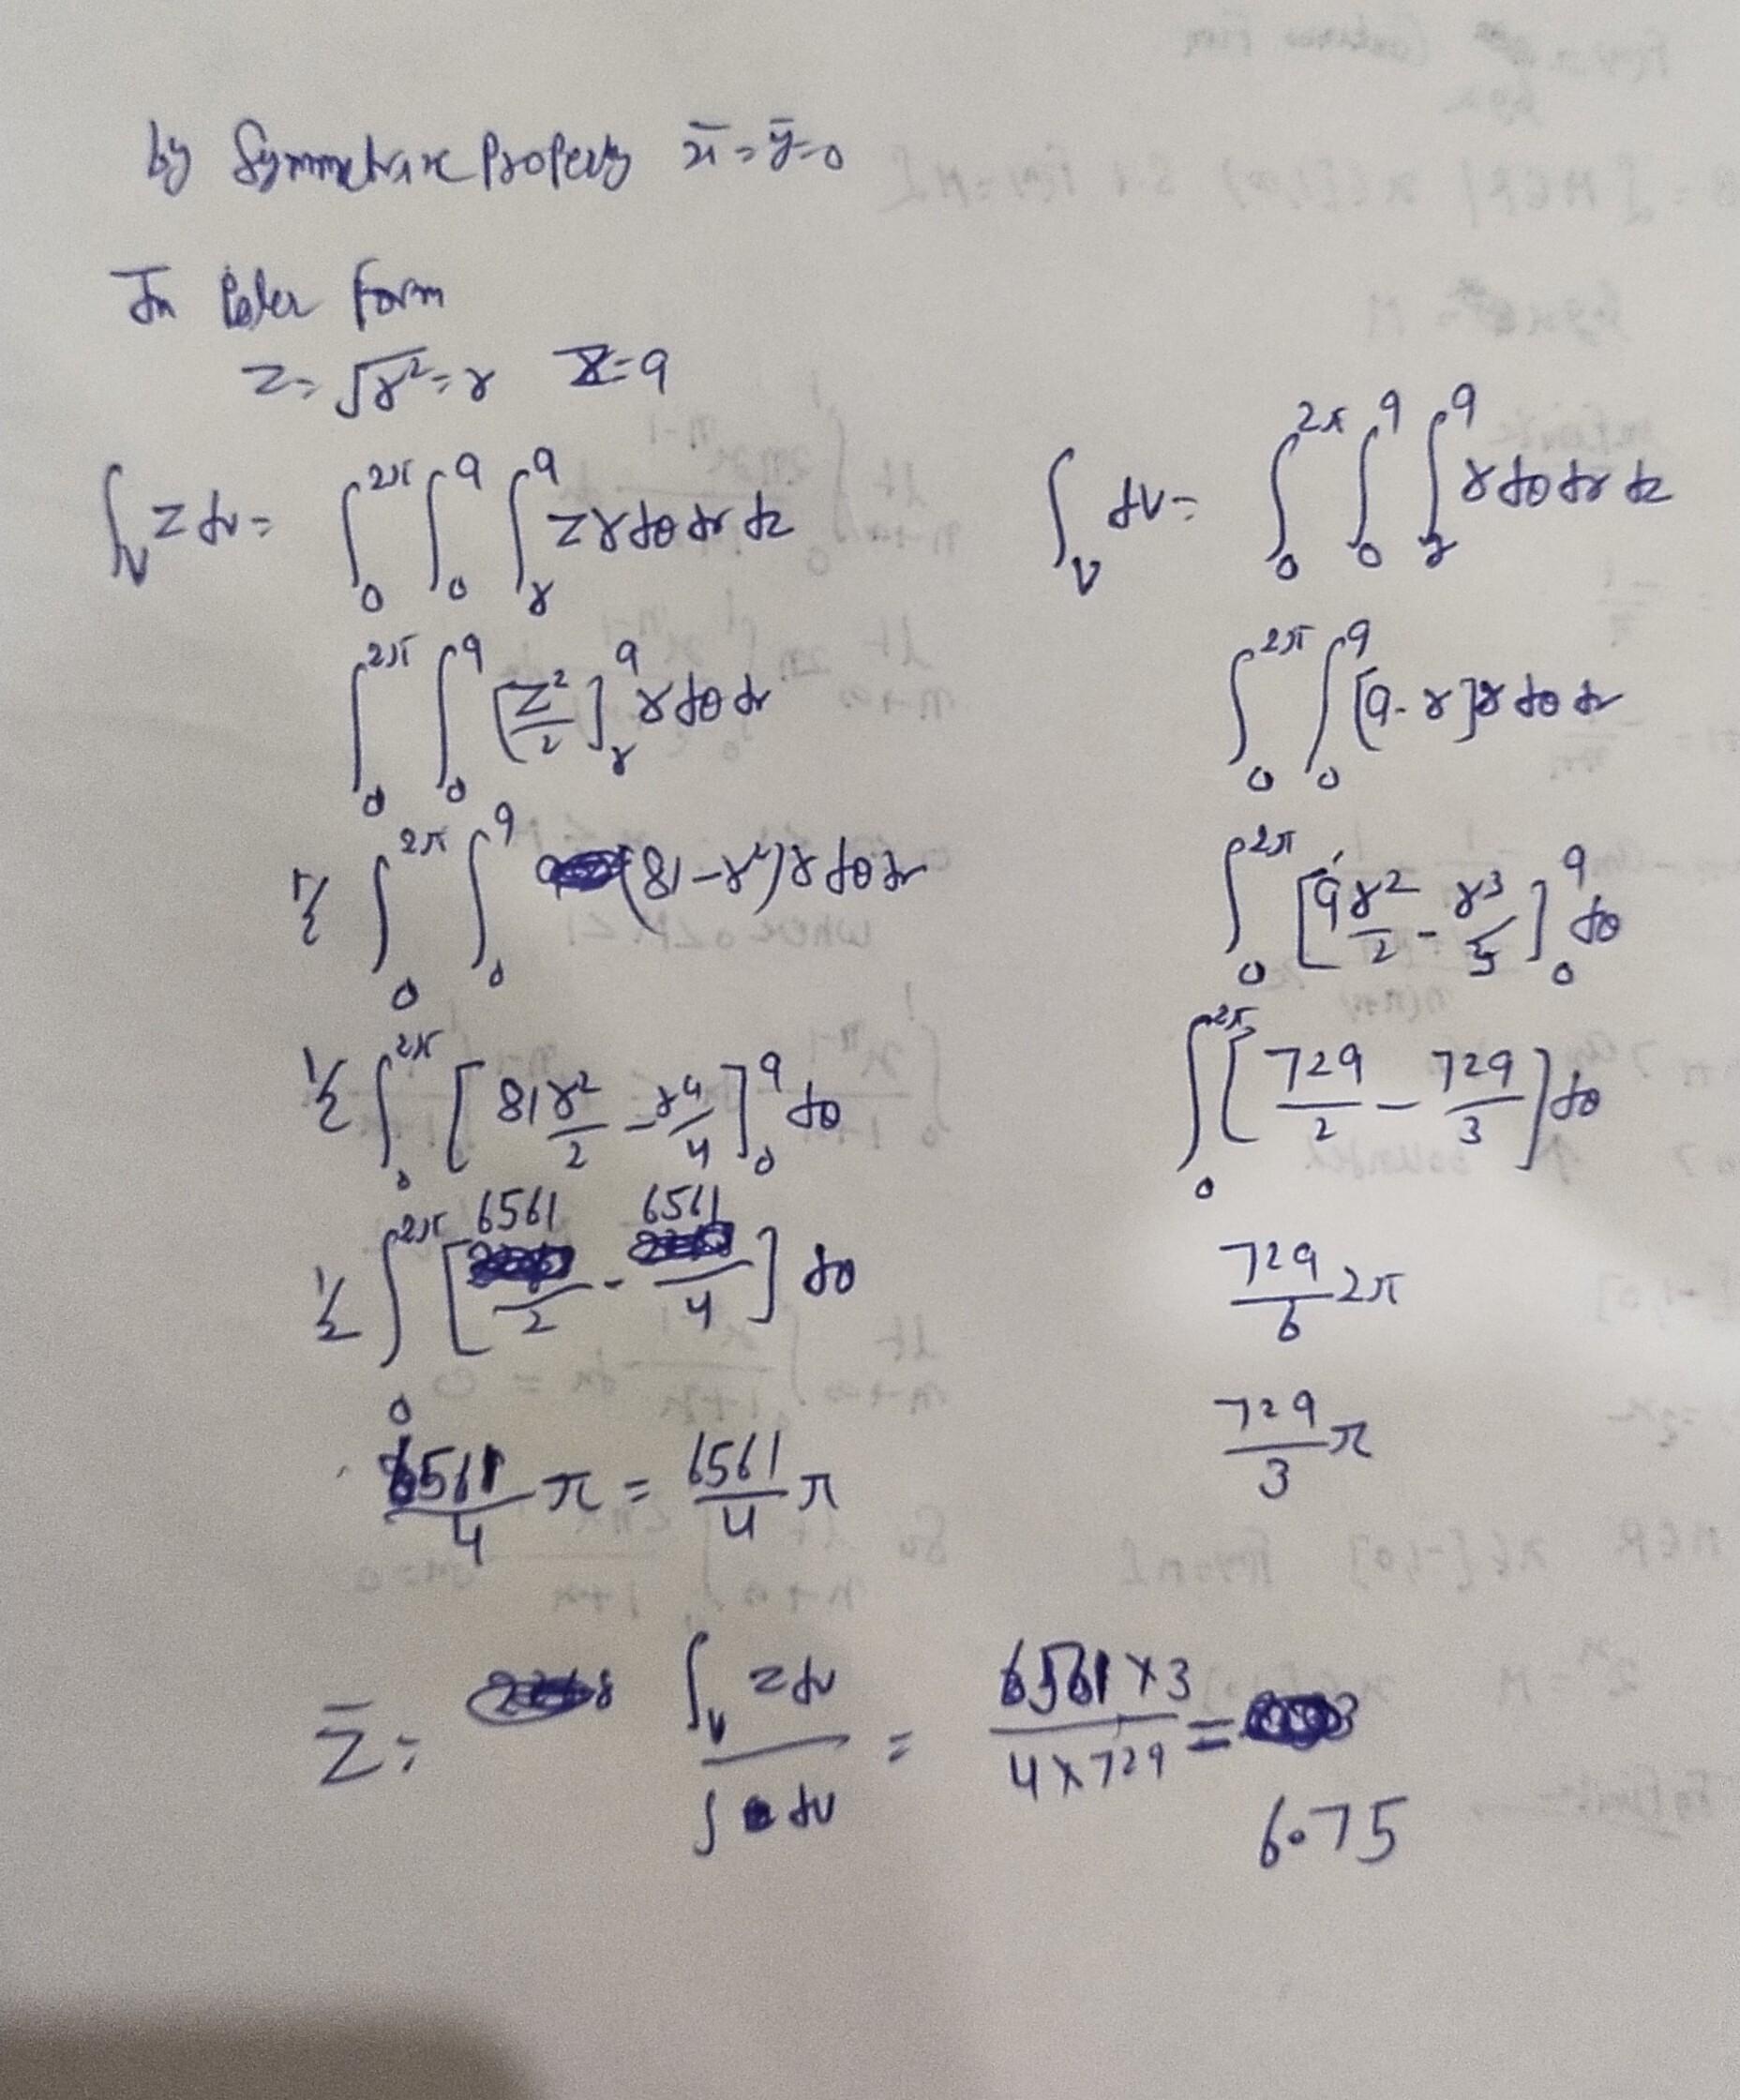 by Symmetric Property x̄ = ȳ = 0
In Poler Form
z = √r² = r z = 9
∫_V z dv = ∫_0^{2π} ∫_0^9 ∫_r^9 z r dθ dr dz
∫_0^{2π} ∫_0^9 [z²/2]_r^9 r dθ dr
1/2 ∫_0^{2π} ∫_0^9 (81 - r²) r dθ dr
1/2 ∫_0^{2π} [81 r²/2 - r⁴/4]_0^9 dθ
1/2 ∫_0^{2π} [6561/2 - 6561/4] dθ
6561/4 π = 6561/4 π
∫_V dv = ∫_0^{2π} ∫_0^9 ∫_r^9 r dθ dr dz
∫_0^{2π} ∫_0^9 [9 - r] r dθ dr
∫_0^{2π} [9 r²/2 - r³/3]_0^9 dθ
∫_0^{2π} [729/2 - 729/3] dθ
729/6 2π
729/3 π
z̄ = ∫_V z dv / ∫ dv = 6561 × 3 / 4 × 729 =
6.75